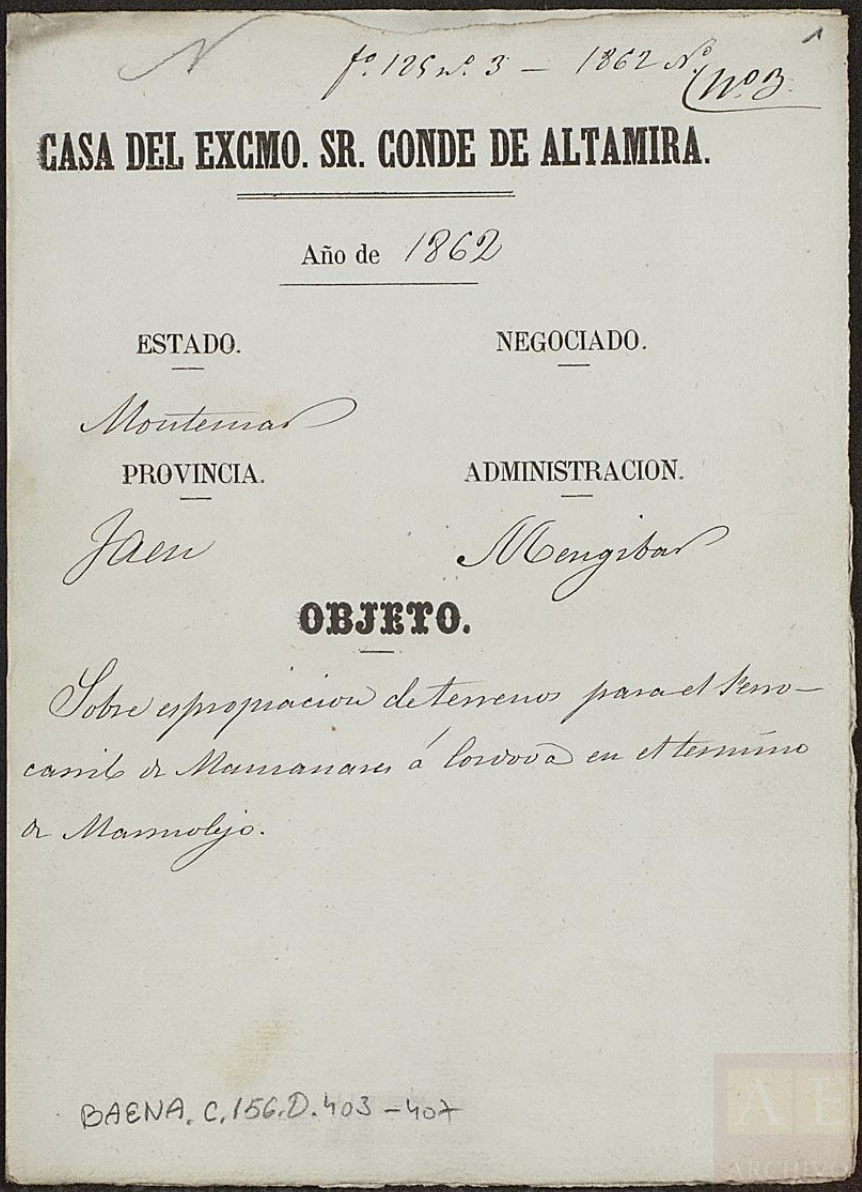 N
1
fº. 125 nº. 3 — 1862 Nº.
(Nº 3.
CASA DEL EXCMO. SR. CONDE DE ALTAMIRA.
Año de 1862
ESTADO. NEGOCIADO.
Montemar
PROVINCIA. ADMINISTRACION.
Jaen Mengibar
OBJETO.
Sobre espropiacion de terrenos para el Ferro-
carril de Manzanares á Cordova en el termino
de Marmolejo.
BAENA. C. 156. D. 403-407
AE
ARCHIVO